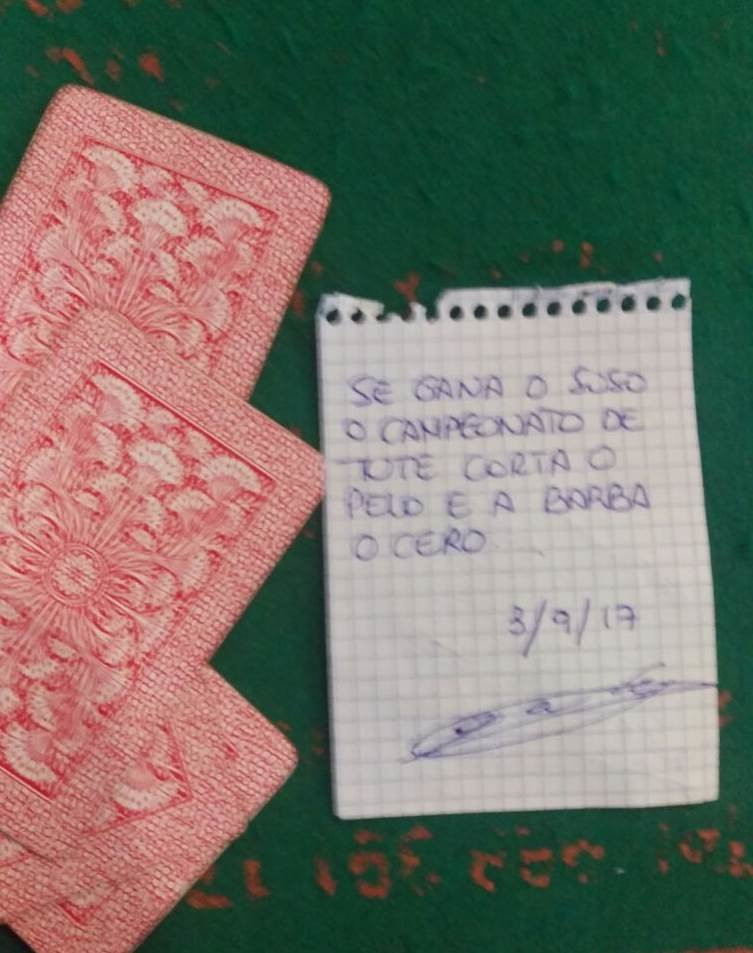 SE GANA O SUSO
O CAMPEONATO DE
TUTE CORTA O
PELO E A BARBA
O CERO
3/9/17